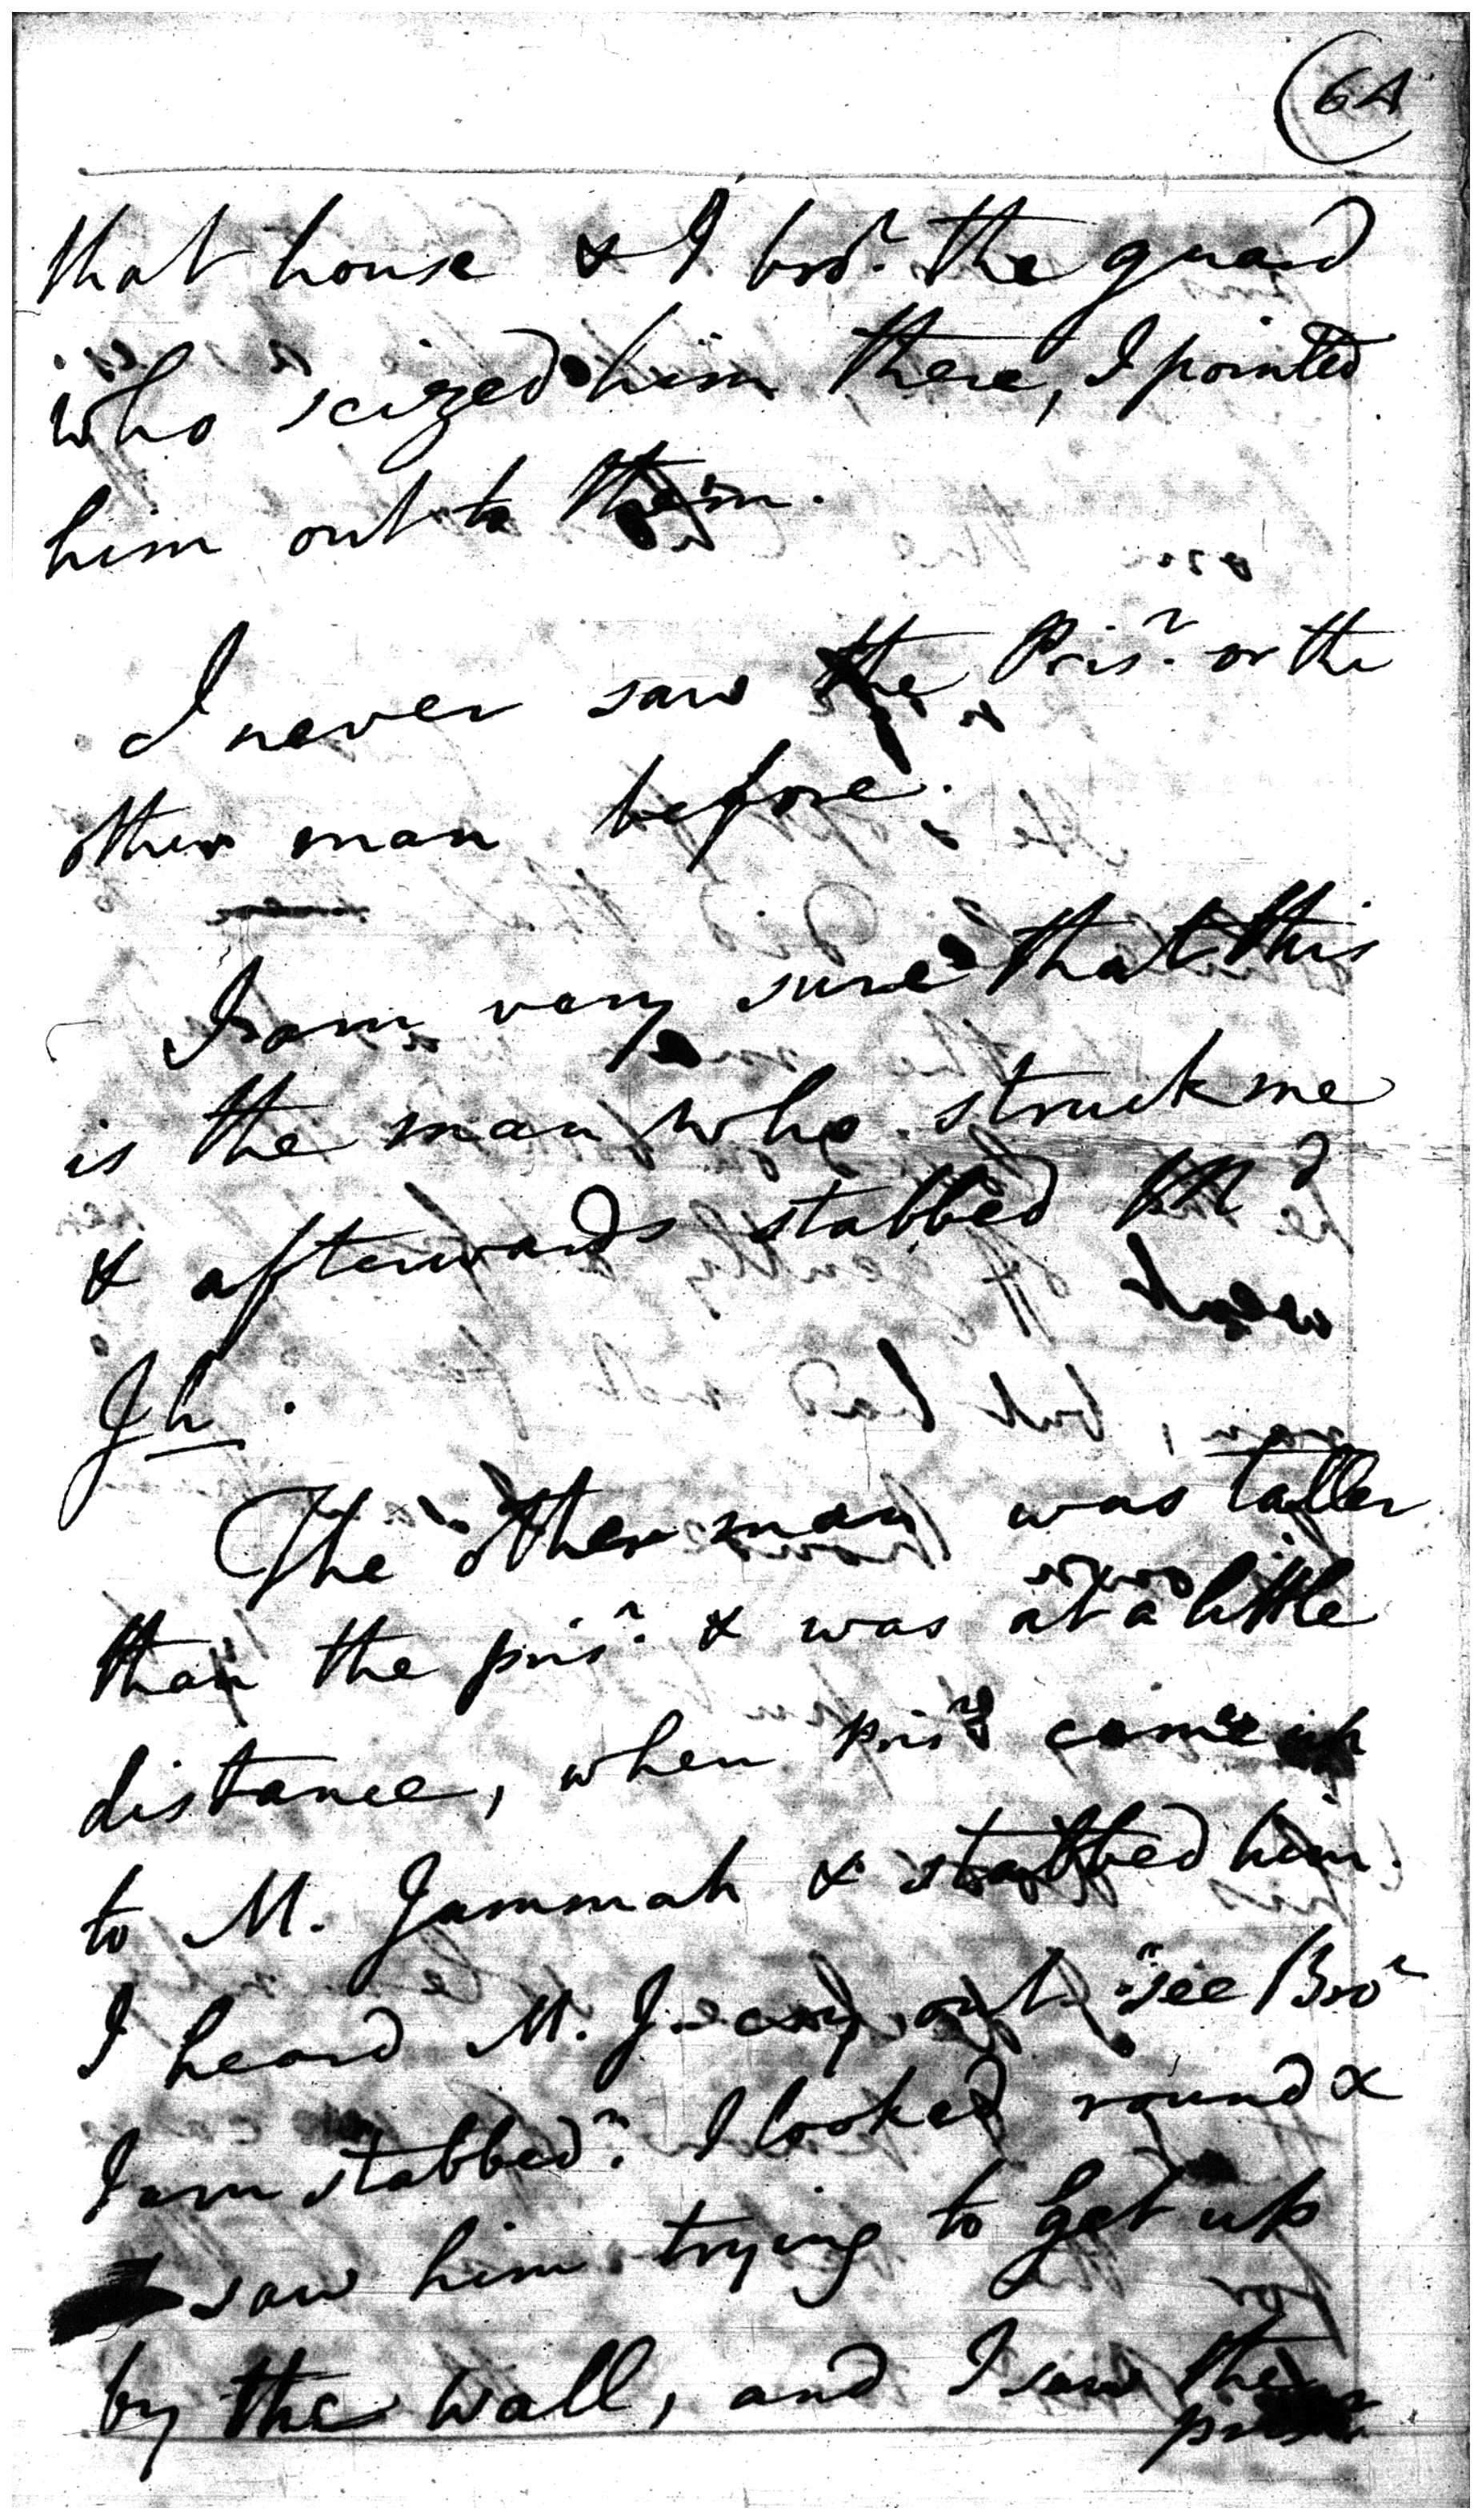 64
that house & I bro.^t the guard
who seized him there, I pointed
him out to them.
I never saw the Pris.^r or the
other man before.
I am very sure that this
is the man who struck me
& afterwards stabbed M^d
Jh.
The other man was taller
than the pris.^r & was at a little
distance, when pris^r came up
to M. Jammah & stabbed him.
I heard M. J. cry out "see Bro^r
I am stabbed". I looked round &
I saw him trying to get up
by the wall, and I saw the
pris^r